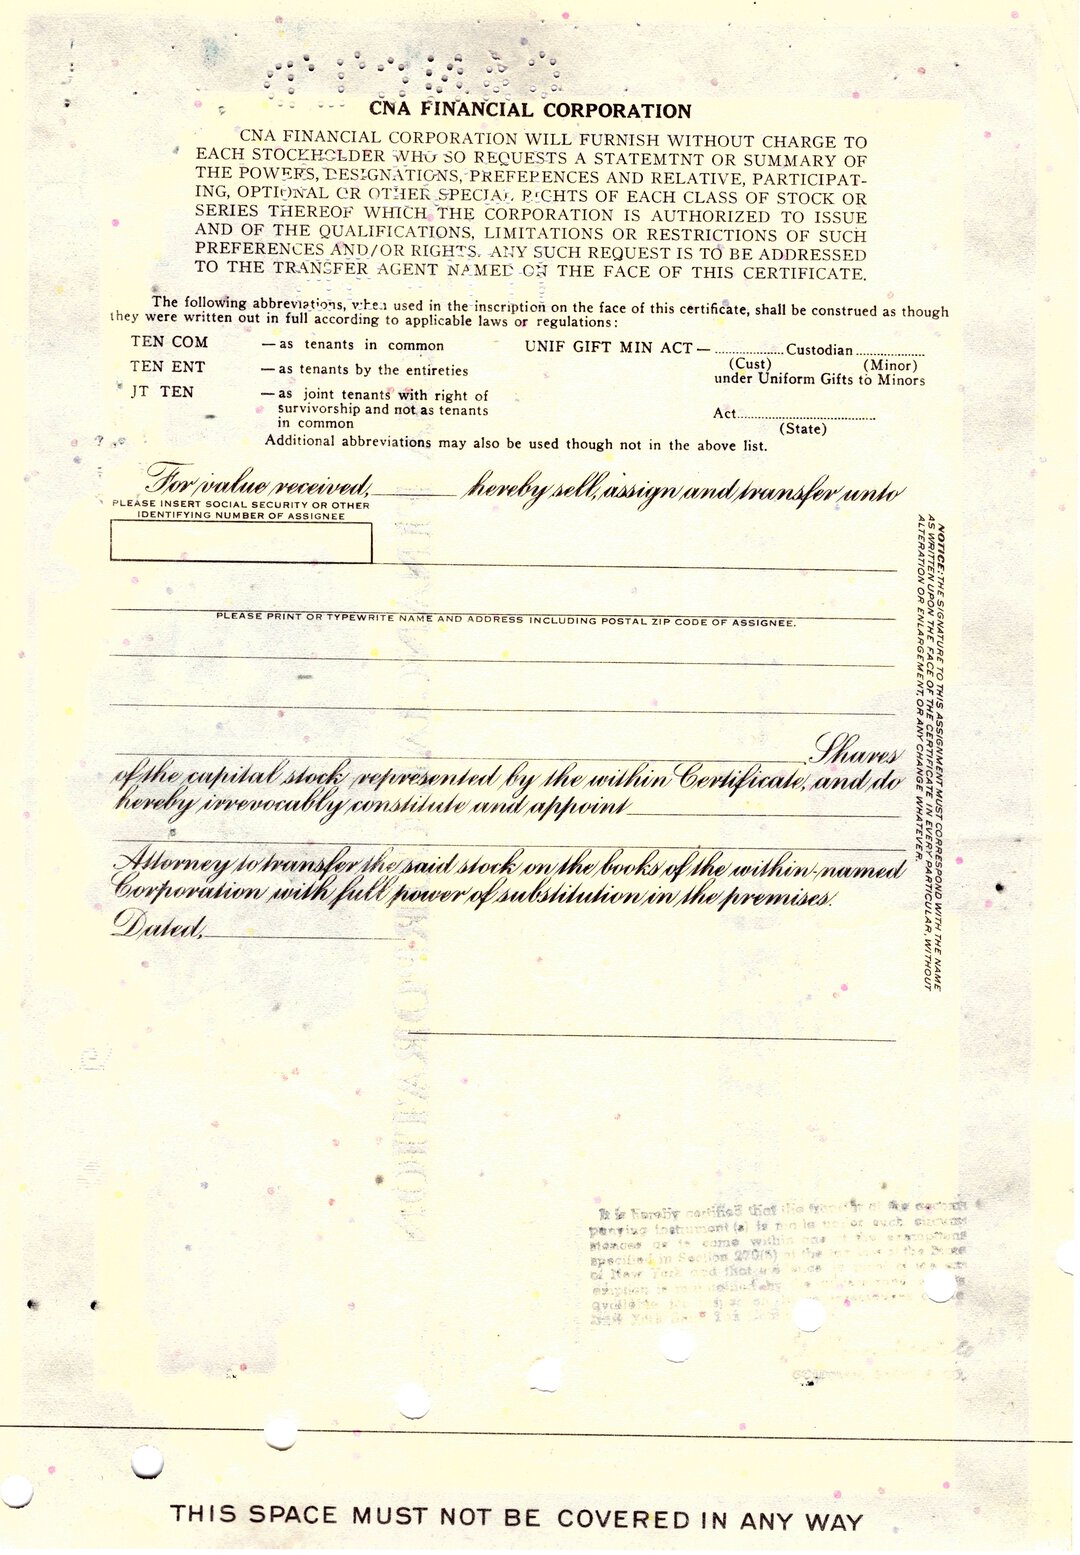 CNA FINANCIAL CORPORATION
CNA FINANCIAL CORPORATION WILL FURNISH WITHOUT CHARGE TO
EACH STOCKHOLDER WHO SO REQUESTS A STATEMTNT OR SUMMARY OF
THE POWERS, DESIGNATIONS, PREFERENCES AND RELATIVE, PARTICIPAT-
ING, OPTIONAL OR OTHER SPECIAL RIGHTS OF EACH CLASS OF STOCK OR
SERIES THEREOF WHICH THE CORPORATION IS AUTHORIZED TO ISSUE
AND OF THE QUALIFICATIONS, LIMITATIONS OR RESTRICTIONS OF SUCH
PREFERENCES AND/OR RIGHTS. ANY SUCH REQUEST IS TO BE ADDRESSED
TO THE TRANSFER AGENT NAMED ON THE FACE OF THIS CERTIFICATE.
The following abbreviations, when used in the inscription on the face of this certificate, shall be construed as though
they were written out in full according to applicable laws or regulations:
TEN COM — as tenants in common
TEN ENT — as tenants by the entireties
JT TEN — as joint tenants with right of
survivorship and not as tenants
in common
UNIF GIFT MIN ACT — .................. Custodian ..................
(Cust) (Minor)
under Uniform Gifts to Minors
Act....................................
(State)
Additional abbreviations may also be used though not in the above list.
For value received, ________ hereby sell, assign and transfer unto
PLEASE INSERT SOCIAL SECURITY OR OTHER
IDENTIFYING NUMBER OF ASSIGNEE
PLEASE PRINT OR TYPEWRITE NAME AND ADDRESS INCLUDING POSTAL ZIP CODE OF ASSIGNEE.
Shares
of the capital stock represented by the within Certificate, and do
hereby irrevocably constitute and appoint
Attorney to transfer the said stock on the books of the within-named
Corporation with full power of substitution in the premises.
Dated,
NOTICE: THE SIGNATURE TO THIS ASSIGNMENT MUST CORRESPOND WITH THE NAME
AS WRITTEN UPON THE FACE OF THE CERTIFICATE IN EVERY PARTICULAR, WITHOUT
ALTERATION OR ENLARGEMENT, OR ANY CHANGE WHATEVER.
It is hereby certified that the
panying instrument(s) is
come within
specified in Section 270(5)
of New York and that
THIS SPACE MUST NOT BE COVERED IN ANY WAY